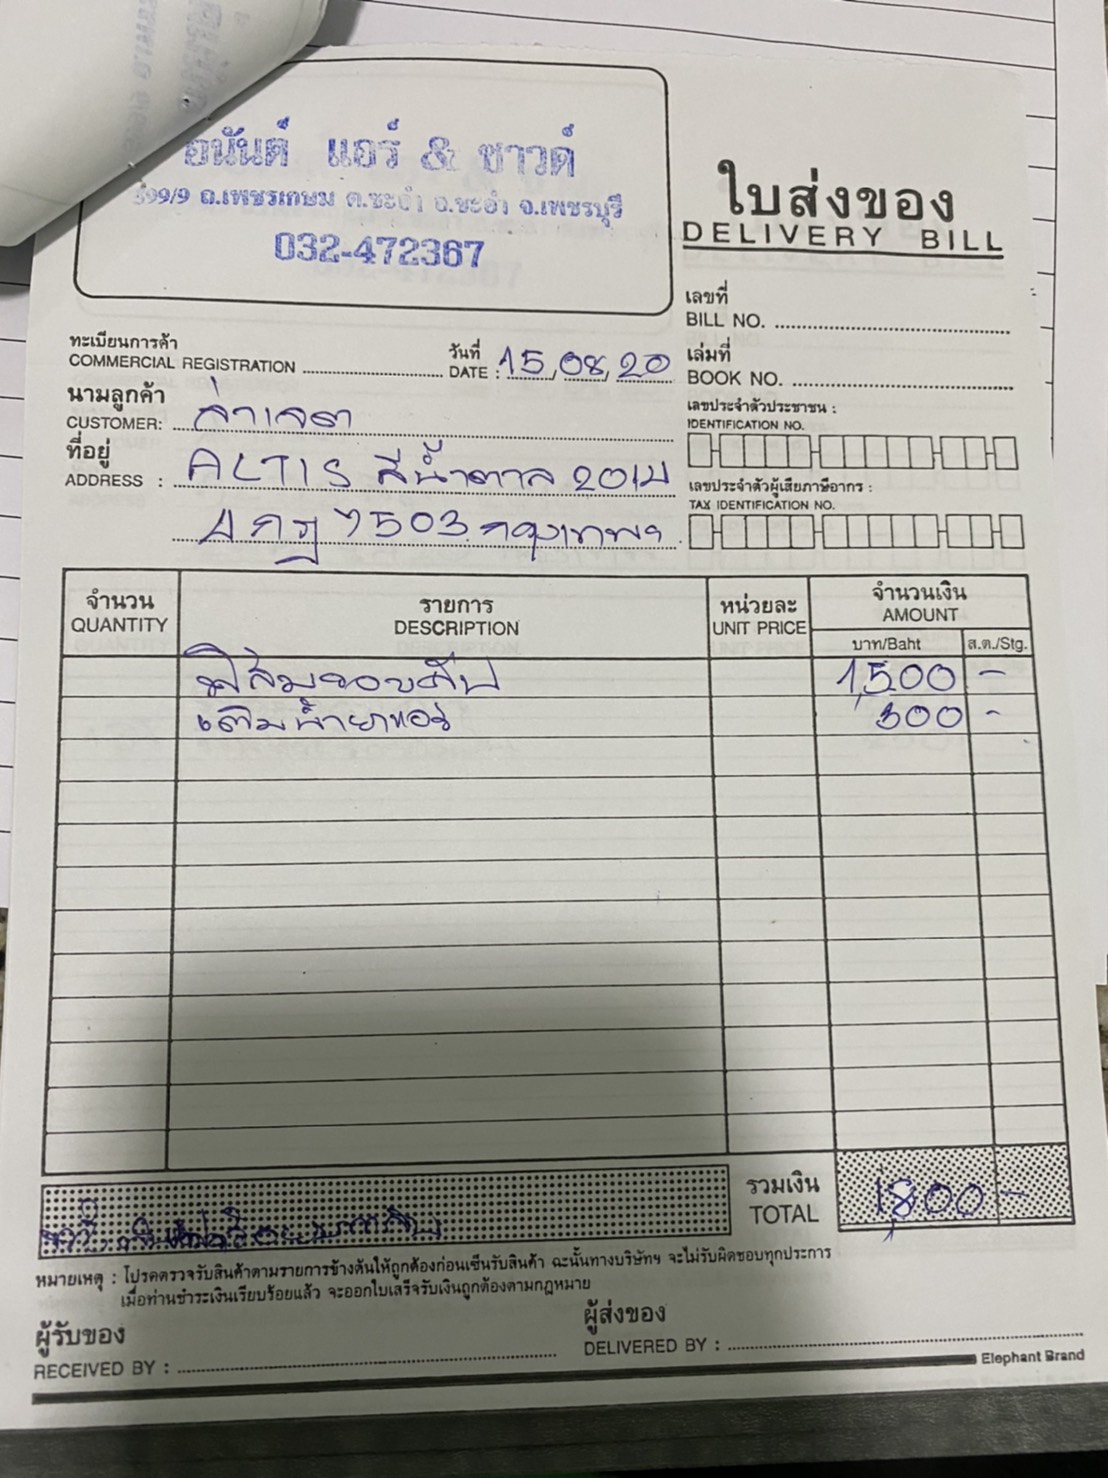 อนันต์ แอร์ & ซาวด์
399/9 ถ.เพชรเกษม ต.ชะอำ อ.ชะอำ จ.เพชรบุรี
032-472367
ใบส่งของ
DELIVERY BILL
เลขที่
BILL NO.
ทะเบียนการค้า
COMMERCIAL REGISTRATION
วันที่
DATE : 15,08,20
เล่มที่
BOOK NO.
นามลูกค้า
CUSTOMER:
เลขประจำตัวประชาชน :
IDENTIFICATION NO.
ที่อยู่
ADDRESS : ALTIS สีน้ำตาล
เลขประจำตัวผู้เสียภาษีอากร :
TAX IDENTIFICATION NO.
4 กฎ 7503 กรุงเทพฯ
จำนวน
QUANTITY
รายการ
DESCRIPTION
หน่วยละ
UNIT PRICE
จำนวนเงิน
AMOUNT
บาท/Baht ส.ต./Stg.
1,500 -
เติมน้ำยาแอร์ 300 -
รวมเงิน
TOTAL 1,800 -
หมายเหตุ : โปรดตรวจรับสินค้าตามรายการข้างต้นให้ถูกต้องก่อนเซ็นรับสินค้า ฉะนั้นทางบริษัทฯ จะไม่รับผิดชอบทุกประการ
เมื่อท่านชำระเงินเรียบร้อยแล้ว จะออกใบเสร็จรับเงินถูกต้องตามกฎหมาย
ผู้รับของ
RECEIVED BY :
ผู้ส่งของ
DELIVERED BY :
Elephant Brand